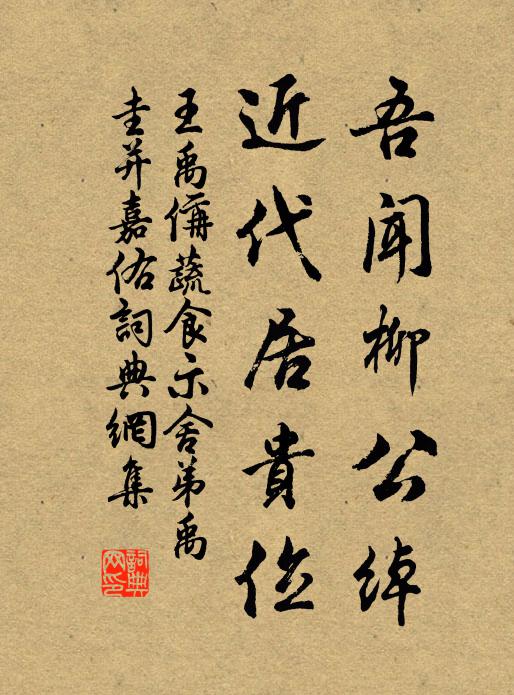 吾聞柳公綽
近代居貴位
王禹偁蔬食示舍弟禹
圭并嘉佑詞典網集
詞典
网印